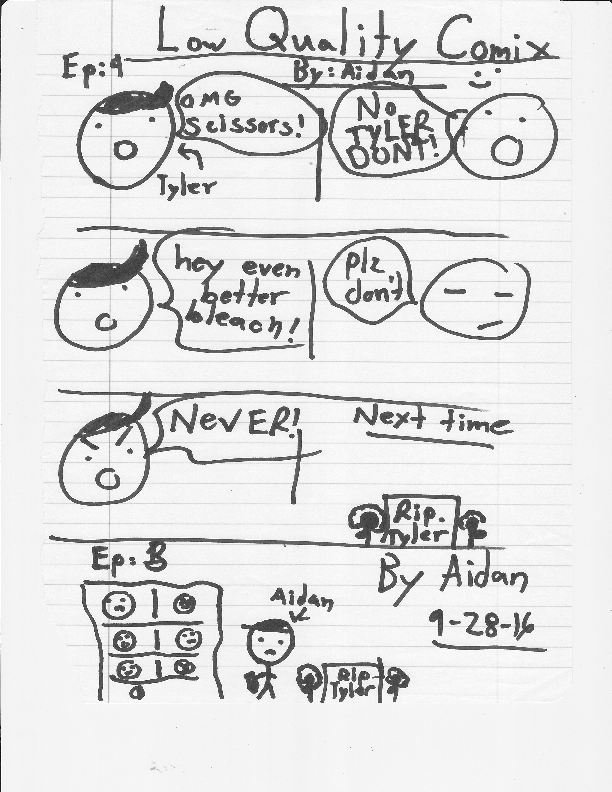 Low Quality Comix
Ep:4
By: Aidan
OMG
Scissors!
Tyler
No
TYLER
DONT!
hey even
better
bleach!
plz
don't
NeVER!
Next time
Rip.
Tyler
Ep:
By Aidan
9-28-16
Aidan
Rip
Tyler